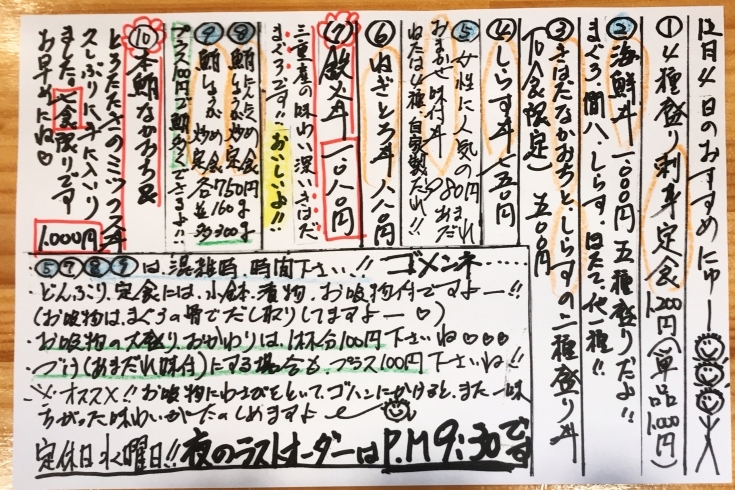 12月4日のおすすめにゅー
① 4種盛り刺身定食 1,200円(単品1,000円)
② 海鮮丼 1,000円 五種盛りだよ!!
まぐろ・間八・しらす・ほたて・他一種!!
③ きはだなかおちと、しらすの二種盛り丼
(10食限定) 五〇〇円
④ しらす丼 七五〇円
⑤ 女性に人気の
おまかせ味付丼 980円
ねたは4種 自家製だれ!!
⑥ ねぎとろ丼 八八〇円
⑦ 鉄火丼 一〇八〇円
三重産の味わい深いきはだ
まぐろです!! おいしいよ!!
⑧ 鮪にんにく炒め定食
⑨ 鮪しょうが炒め定食
プラス100円で鮪多くできるよ!!
⑩ 本鮪なかおち&
とろたたきのミックス丼
久しぶりに手に入り
ました。七食限りです
お早めにね♡
1,000円
・⑤⑦⑧⑨は混雑時、時間下さい!! ゴメンネ……
・どんぶり、定食には、小鉢、漬物、お吸物付ですよー!!
(お吸物は、まぐろの骨でだし取りしてますよー♡)
・お吸物の大盛り、おかわりは、1杯分100円下さいね♡♡♡
・づけ(あまだれ味付)にする場合も、プラス100円下さいね!!
※オススメ!! お吸物にわさびをといて、ゴハンにかけると、また一味
ちがった味わいがたのしめますよ
定休日水曜日!! 夜のラストオーダーはP.M9:30です